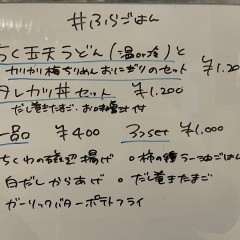 #ふらごはん
ちく玉天うどん(温or冷)と
カリカリ梅ちりめんおにぎりのセット ¥1.20
タレカツ丼セット ¥1.200
だし巻きたまご、お味噌汁付
一品 ¥400 3つset ¥1.000
ちくわの磯辺揚げ 。柿の種ラー油ごはん
白だしからあげ 。だし巻きたまご
ガーリックバターポテトフライ